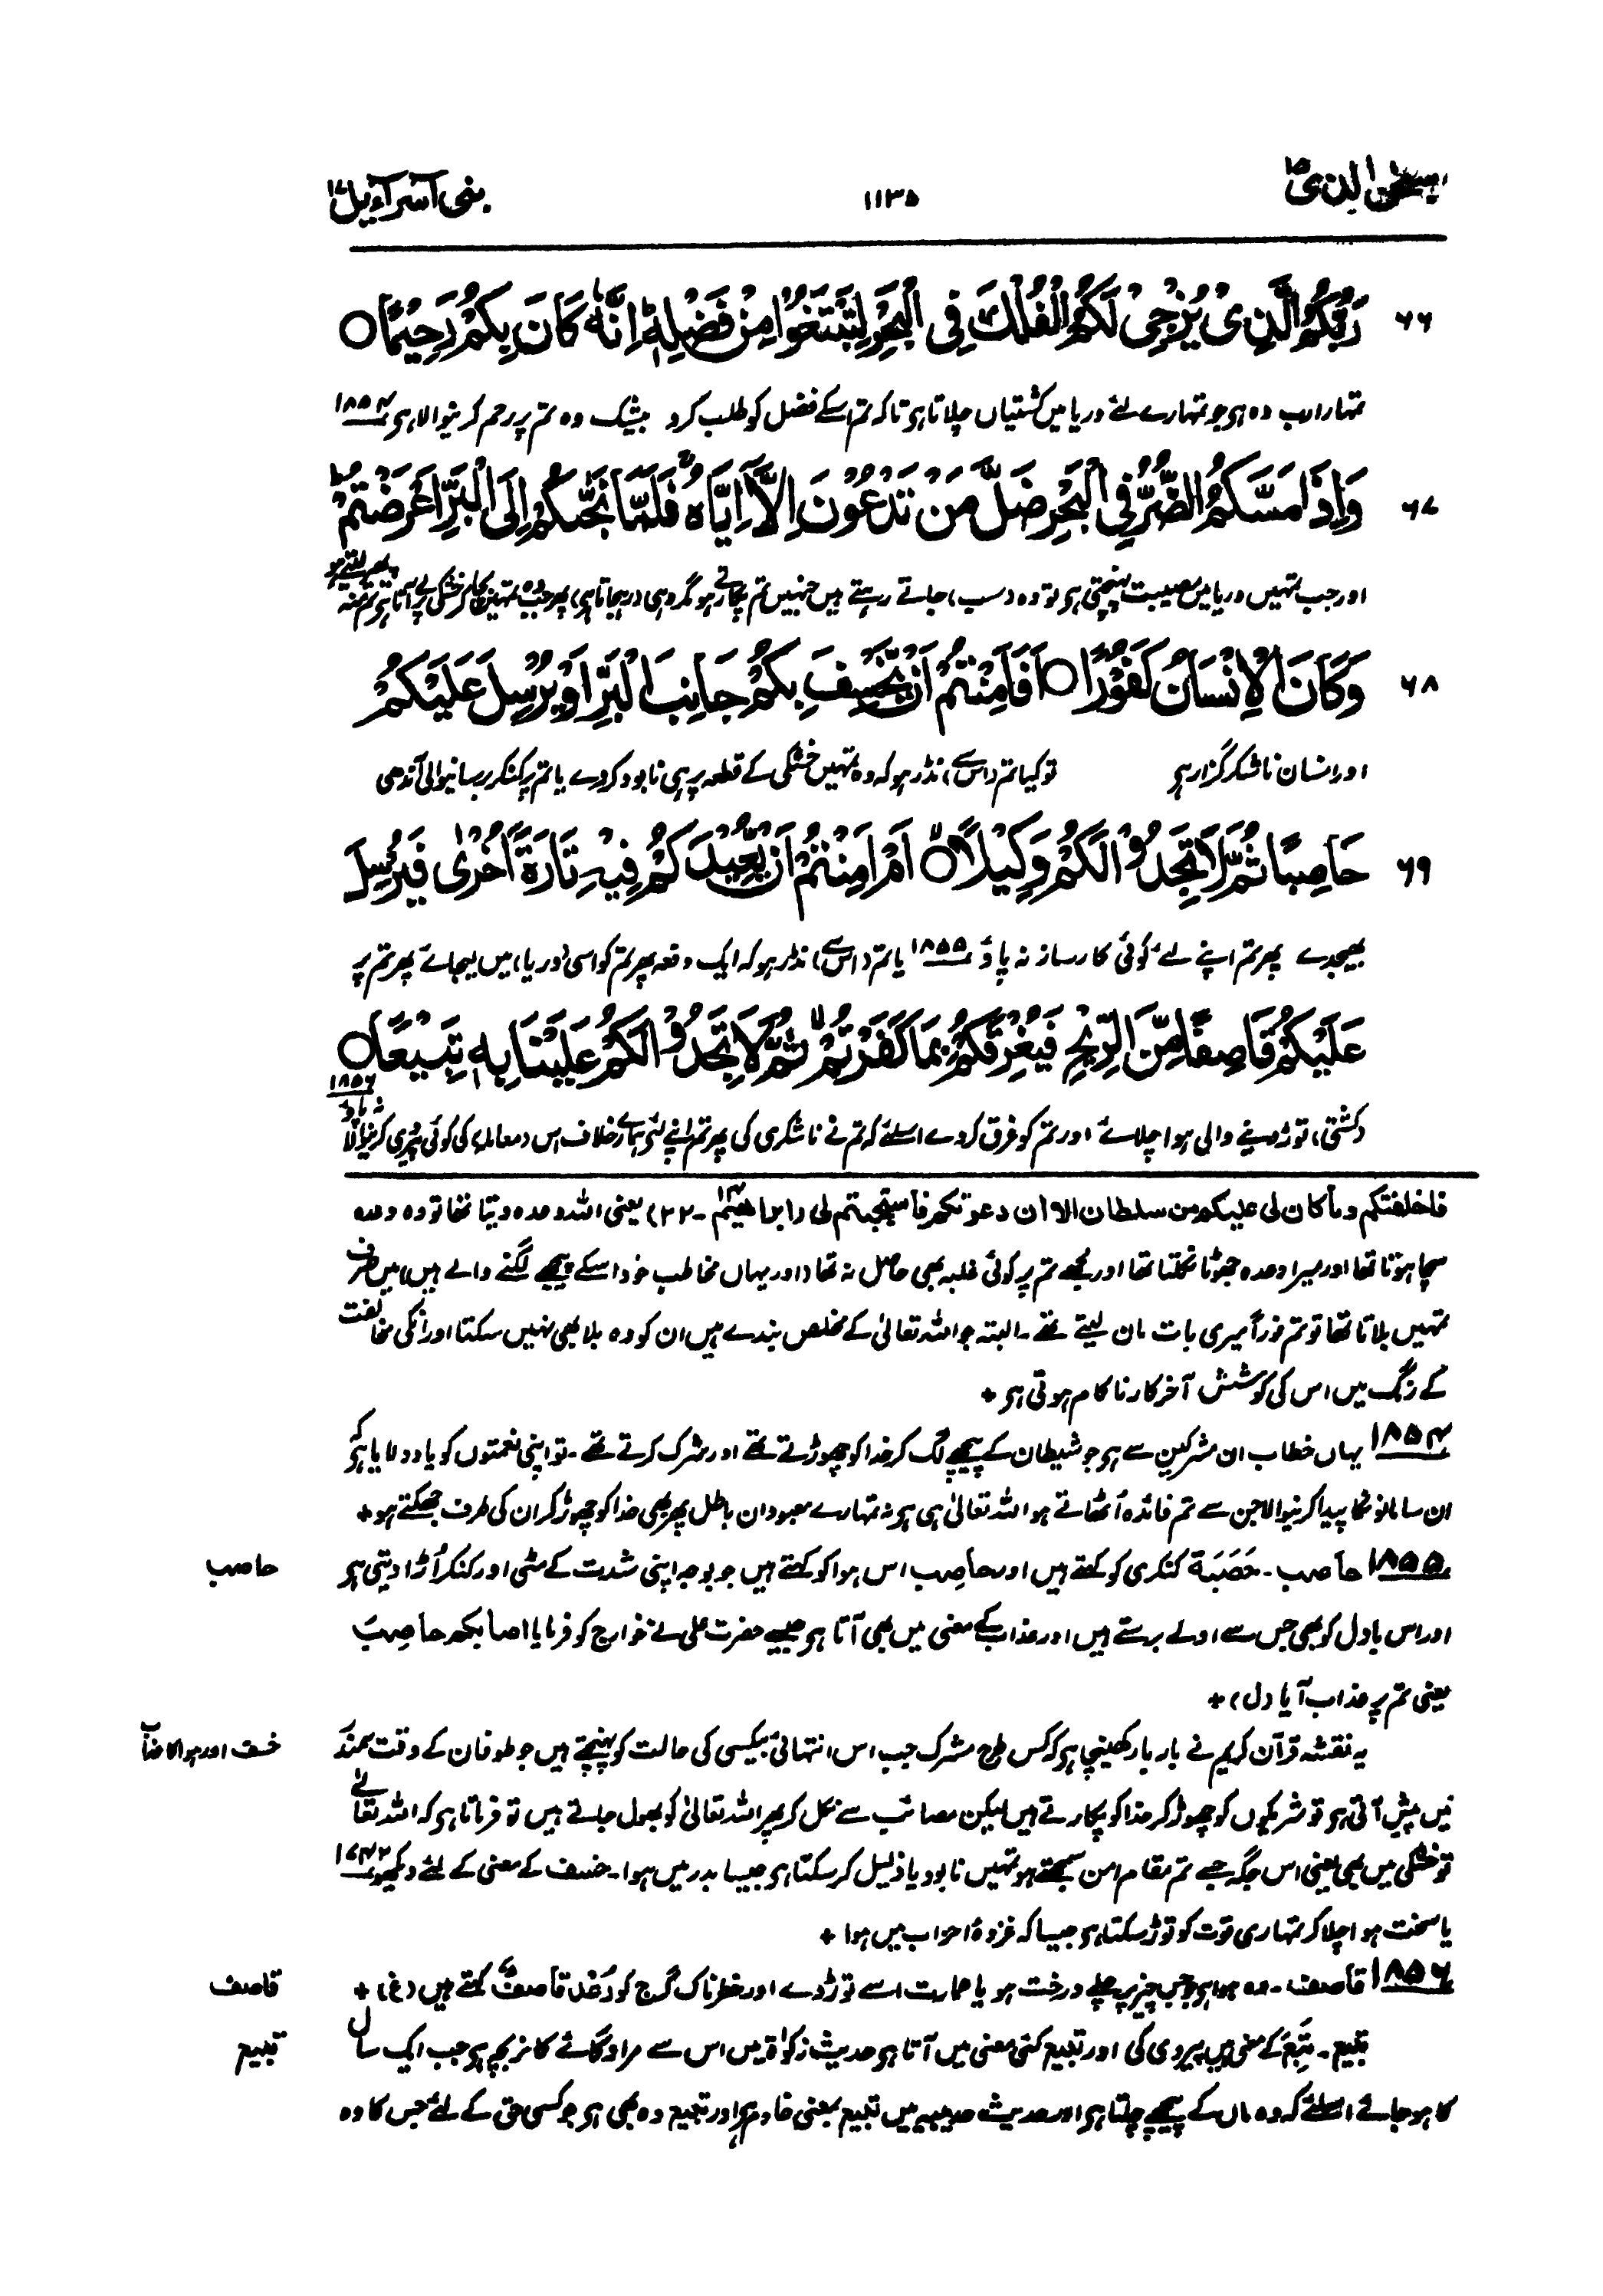 سبحٰن الذی ۱۵
۱۱۳۵
بنی اسرآءیل ۱۷
۶۶ رَبُّكُمُ الَّذِیْ یُزْجِیْ لَكُمُ الْفُلْكَ فِی الْبَحْرِ لِتَبْتَغُوْا مِنْ فَضْلِهٖ ؕ اِنَّهٗ كَانَ بِكُمْ رَحِیْمًا ○
تمہارا رب وہ ہی جو تمہارے لئے دریا میں کشتیاں چلاتا ہی تاکہ تم اسکے فضل کو طلب کرو بیشک وہ تم پر رحم کرنیوالا ہی ۱۸۵۴
۶۷ وَاِذَا مَسَّكُمُ الضُّرُّ فِی الْبَحْرِ ضَلَّ مَنْ تَدْعُوْنَ اِلَّاۤ اِیَّاهُ ۚ فَلَمَّا نَجّٰىكُمْ اِلَی الْبَرِّ اَعْرَضْتُمْ ؕ
اور جب تمہیں دریا میں مصیبت پہنچتی ہی تو وہ (سب) جاتے رہتے ہیں جنہیں تم پکارتے ہو مگر وہی (رہجاتا ہی) پھر جب وہ تمہیں بچا کر خشکی پر لے آتا ہی تم منہ پھیر لیتے ہو
۶۸ وَكَانَ الْاِنْسَانُ كَفُوْرًا ○ اَفَاَمِنْتُمْ اَنْ یَّخْسِفَ بِكُمْ جَانِبَ الْبَرِّ اَوْ یُرْسِلَ عَلَیْكُمْ
اور انسان ناشکر گزار ہی تو کیا تم (اس سے) نڈر ہو کہ وہ تمہیں خشکی کے قطعہ پر ہی نابود کر دے یا تم پر کنکر برسانیوالی آندھی
۶۹ حَاصِبًا ثُمَّ لَا تَجِدُوْا لَكُمْ وَكِیْلًا ○ اَمْ اَمِنْتُمْ اَنْ یُّعِیْدَكُمْ فِیْهِ تَارَةً اُخْرٰی فَیُرْسِلَ
بھیجدے پھر تم اپنے لئے کوئی کارساز نہ پاؤ ۱۸۵۵ یا تم (اس سے) نڈر ہو کہ ایک دفعہ پھر تم کو اسی (دریا) میں لیجائے پھر تم پر
عَلَیْكُمْ قَاصِفًا مِّنَ الرِّیْحِ فَیُغْرِقَكُمْ بِمَا كَفَرْتُمْ ۙ ثُمَّ لَا تَجِدُوْا لَكُمْ عَلَیْنَا بِهٖ تَبِیْعًا ○
(کشتی) توڑ دینے والی ہوا چلائے اور تم کو غرق کر دے اسلئے کہ تم نے ناشکری کی پھر تم اپنے لئے ہمارے خلاف اس (معاملہ) کی کوئی پیروی کرنیوالا نہ پاؤ ۱۸۵۶
فاخلفتكم وما كان لی علیكم من سلطان الا ان دعوتكم فاستجبتم لی (ابراھیم ۱۴-۲۲) یعنی اللہ وعدہ دیتا تھا تو وہ وعدہ
سچا ہوتا تھا اور میرا وعدہ جھوٹا نکلتا تھا اور مجھے تم پر کوئی غلبہ بھی حاصل نہ تھا (اور یہاں مخاطب خود اسکے پیچھے لگنے والے ہیں) میں صرف
تمہیں بلاتا تھا تو تم فوراً میری بات مان لیتے تھے۔ البتہ جو اللہ تعالیٰ کے مخلص بندے ہیں ان کو وہ بلا بھی نہیں سکتا اور انکی مخالفت
کے رنگ میں اس کی کوشش آخرکار ناکام ہوتی ہی +
۱۸۵۴ یہاں خطاب ان مشرکین سے ہی جو شیطان کے پیچھے لگ کر خدا کو چھوڑتے تھے اور شرک کرتے تھے۔ تو اپنی نعمتوں کو یاد دلایا ہی کہ
ان سامانوں کا پیدا کرنیوالا جن سے تم فائدہ اُٹھاتے ہو اللہ تعالیٰ ہی ہی نہ تمہارے معبودان باطل پھر بھی خدا کو چھوڑ کر ان کی طرف جھکتے ہو +
۱۸۵۵ حاصب۔ حَصَبَة کنکری کو کہتے ہیں اور حاصِب اس ہوا کو کہتے ہیں جو بوجہ اپنی شدت کے مٹی اور کنکر اُڑا دیتی ہی
حاصب
اور اس بادل کو بھی جس سے اولے برستے ہیں اور عذاب کے معنی میں بھی آتا ہی جیسے حضرت علی نے خوارج کو فرمایا اصابکم حاصِبٌ
یعنی تم پر عذاب آیا (ل) +
یہ نقشہ قرآن کریم نے بار بار کھینچا ہی کہ کس طرح مشرک جب اس انتہائی بیکسی کی حالت کو پہنچتے ہیں جو طوفان کے وقت سمندر
خسف اور ہوا کا عذاب
میں پیش آتی ہی تو شریکوں کو چھوڑ کر خدا کو پکارتے ہیں لیکن مصائب سے نکل کر پھر اللہ تعالیٰ کو بھول جاتے ہیں تو فرماتا ہی کہ اللہ تعالےٰ
تو خشکی میں بھی یعنی اس جگہ جسے تم مقام امن سمجھتے ہو تمہیں نابود یا ذلیل کر سکتا ہی جیسا بدر میں ہوا۔ خسف کے معنی کے لئے دیکھو ۱۷۴۲
یا سخت ہوا چلا کر تمہاری قوت کو توڑ سکتا ہی جیسا کہ غزوۂ احزاب میں ہوا +
۱۸۵۶ قاصف۔ وہ ہوا ہی جو جس چیز پر چلے درخت ہو یا عمارت اسے توڑ دے اور خطرناک گرج کو رَعْد قاصفٌ کہتے ہیں (غ) +
قاصف
تبیع۔ تَبِعَ کے معنی ہیں پیروی کی اور تبیع کئی معنی میں آتا ہی حدیث زکوٰۃ میں اس سے مراد گائے کا نر بچہ ہی جب ایک سال
تبیع
کا ہو جائے اسلئے کہ وہ ماں کے پیچھے چلتا ہی اور حدیث حدیبیہ میں تبیع بمعنی خادم ہی اور تبیع وہ بھی ہی جو کسی حق کے لئے جس کا وہ